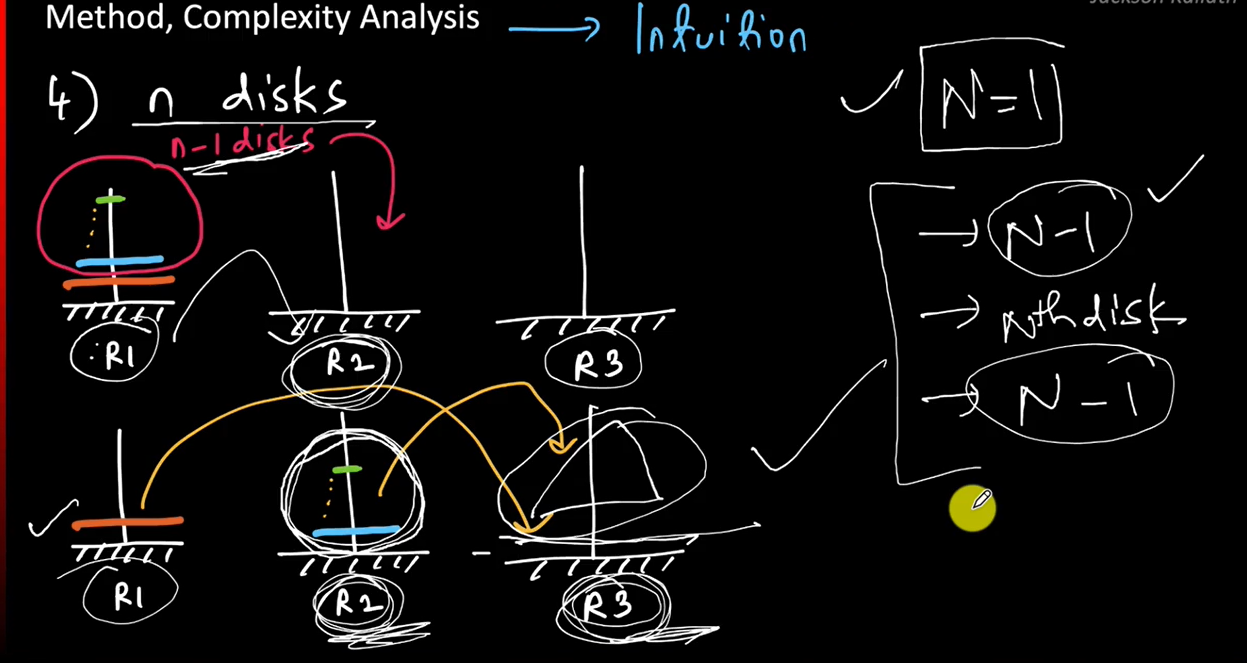 Method, Complexity Analysis → Intuition
4) n disks
n-1 disks
R1 R2 R3
R1 R2 R3
N=1
→ N-1
→ Nth disk
→ N-1